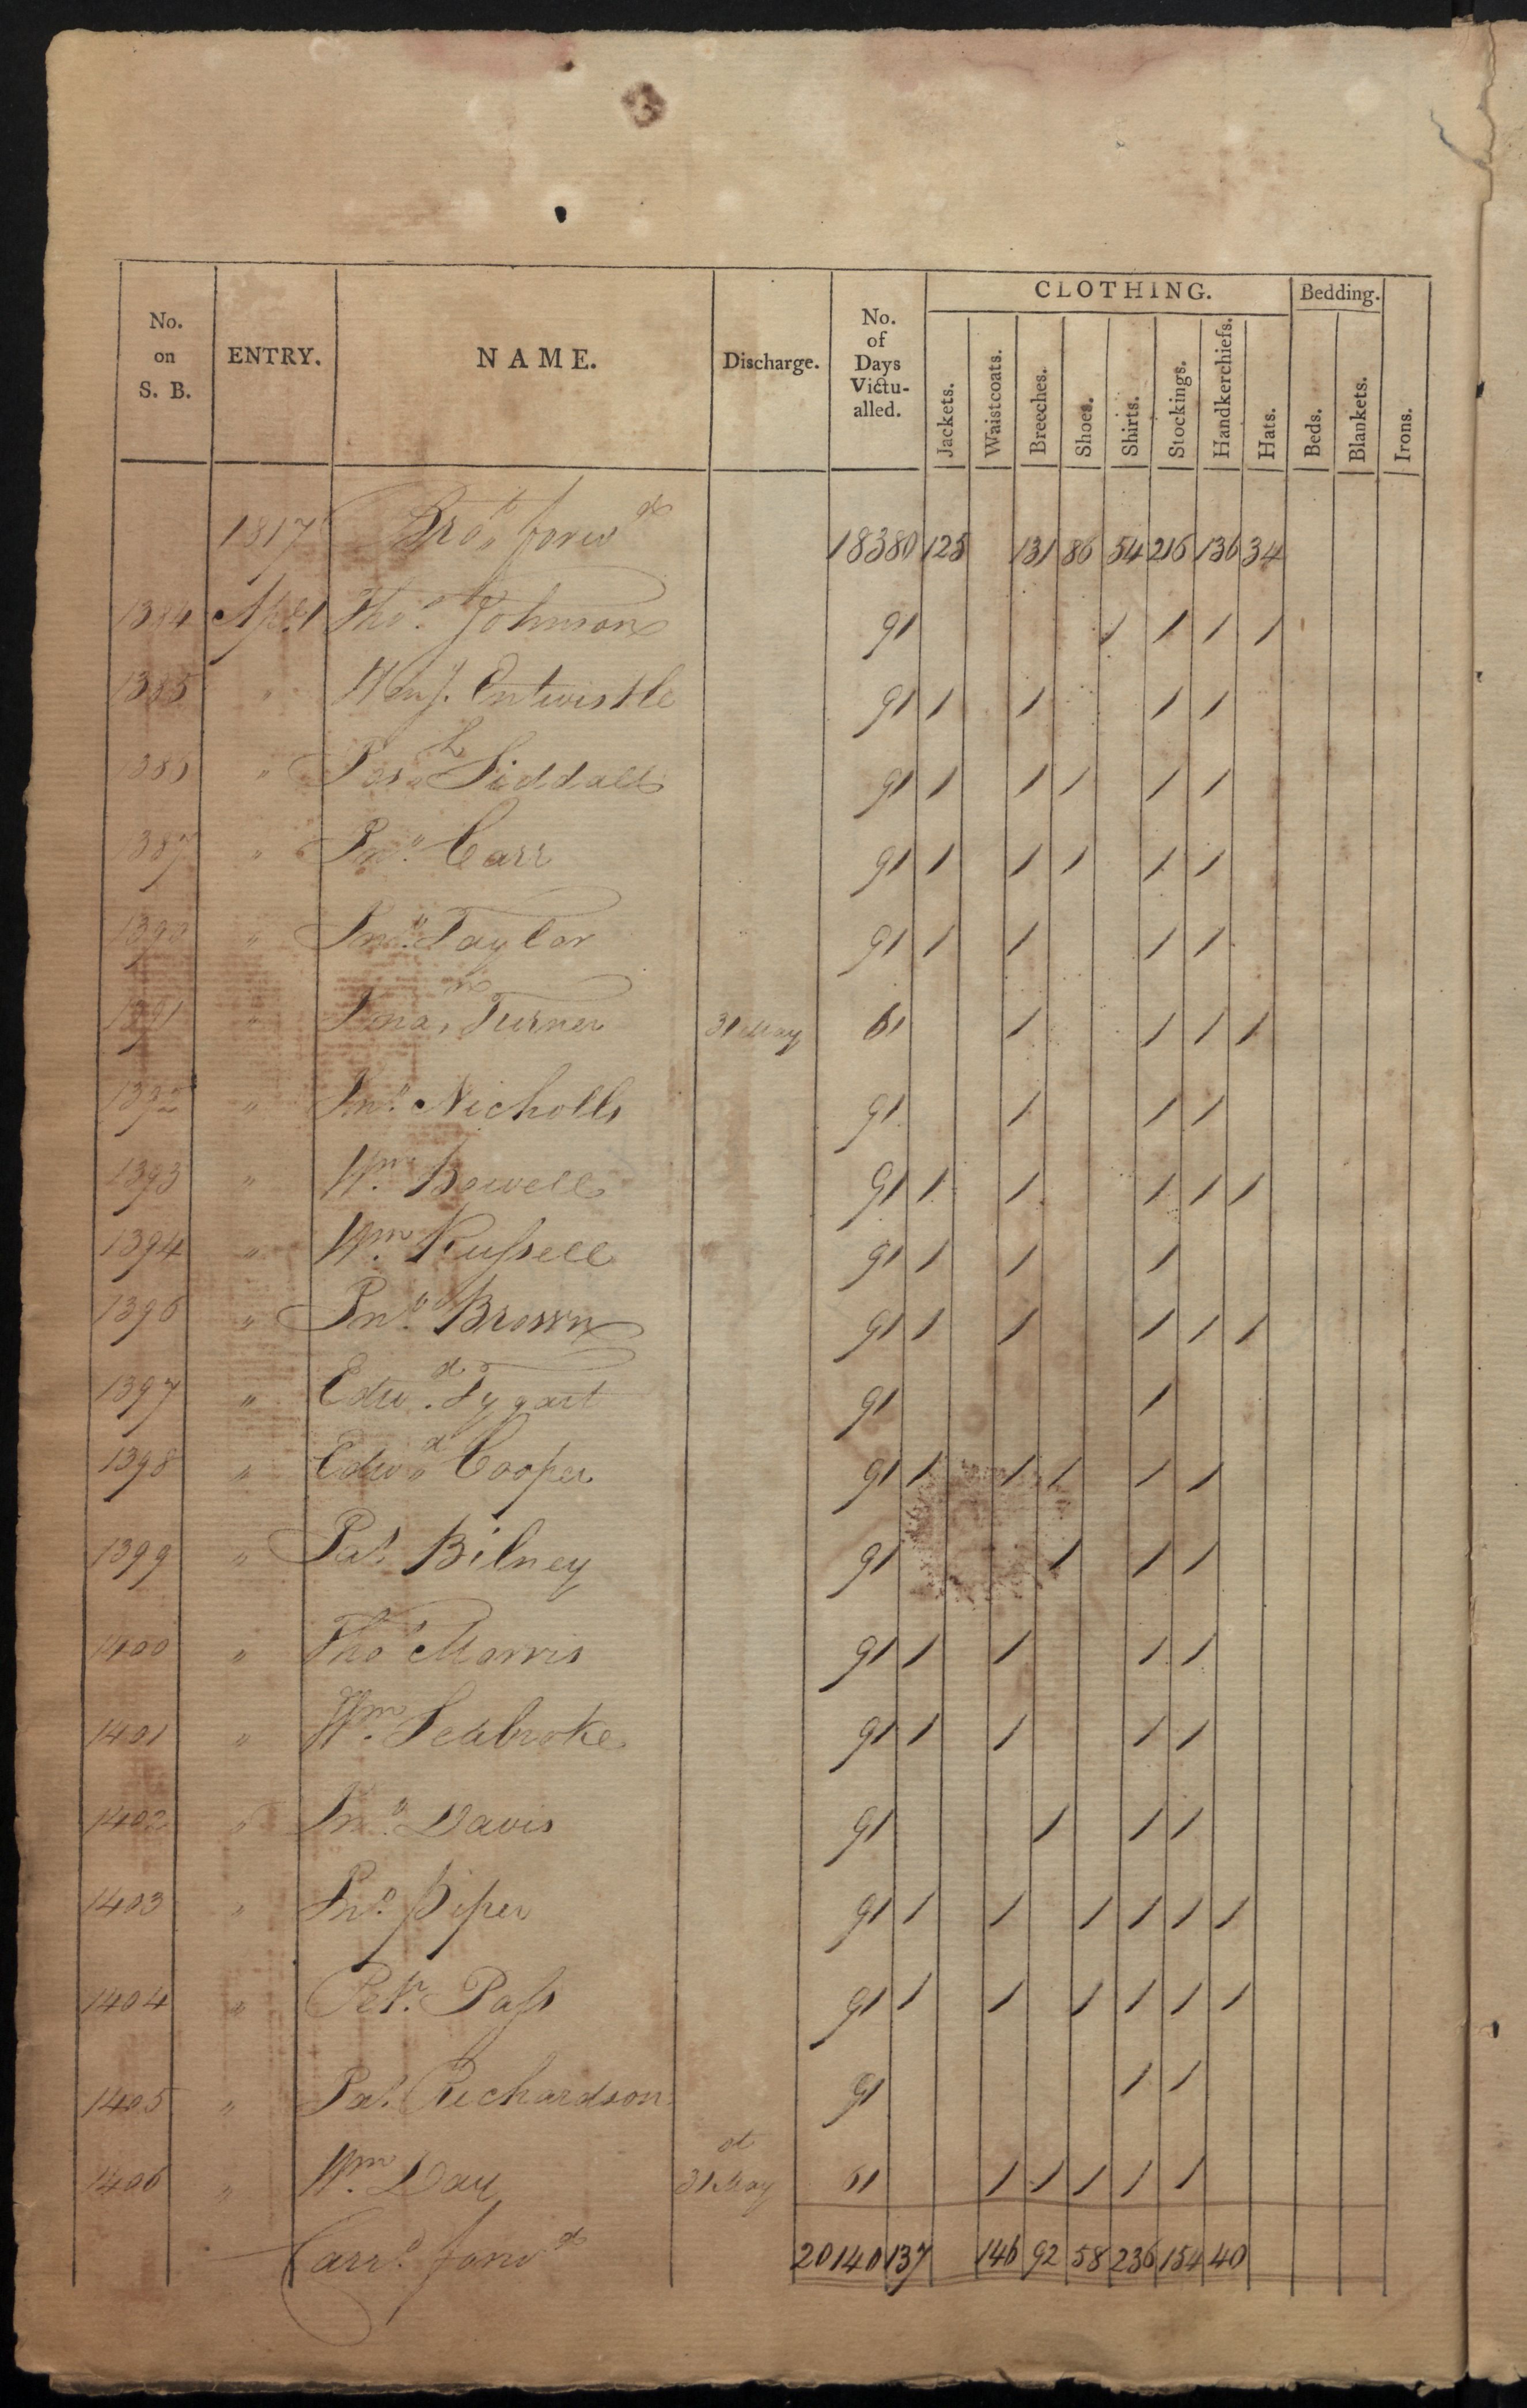 CLOTHING. Bedding.
No. on S. B. ENTRY. NAME. Discharge. No. of Days Victu-alled. Jackets. Waistcoats. Breeches. Shoes. Shirts. Stockings. Handkerchiefs. Hats. Beds. Blankets. Irons.
1817 Bro.t forw.d 18380 125 131 86 54 216 136 34
1384 Apl. 1 Tho.s Johnson 91 1 1 1 1
1385 " Hen.y Entwistle 91 1 1 1 1
1386 " Jos.h Siddall 91 1 1 1 1 1
1387 " Jn.o Carr 91 1 1 1 1 1
1390 " Jn.o Taylor 91 1 1 1 1
1391 " Jona.n Turner 31 May 61 1 1 1 1
1392 " Jn.o Nicholls 91 1 1 1
1393 " Wm. Bowell 91 1 1 1 1 1
1394 " Wm. Russell 91 1 1 1
1396 " Jn.o Brown 91 1 1 1 1 1
1397 " Edw.d Tygart 91 1
1398 " Edw.d Cooper 91 1 1 1 1 1
1399 " Ja.s Bilney 91 1 1 1
1400 " Tho.s Morris 91 1 1 1 1
1401 " Wm. Seabroke 91 1 1 1 1
1402 " Jn.o Davis 91 1 1 1
1403 " Jn.o Piper 91 1 1 1 1 1 1
1404 " Pet.r Pass 91 1 1 1 1 1 1
1405 " Ja.s Richardson 91 1 1
1406 " Wm. Day 31 May 61 1 1 1 1 1
Carr.d forw.d 20140 137 146 92 58 236 154 40